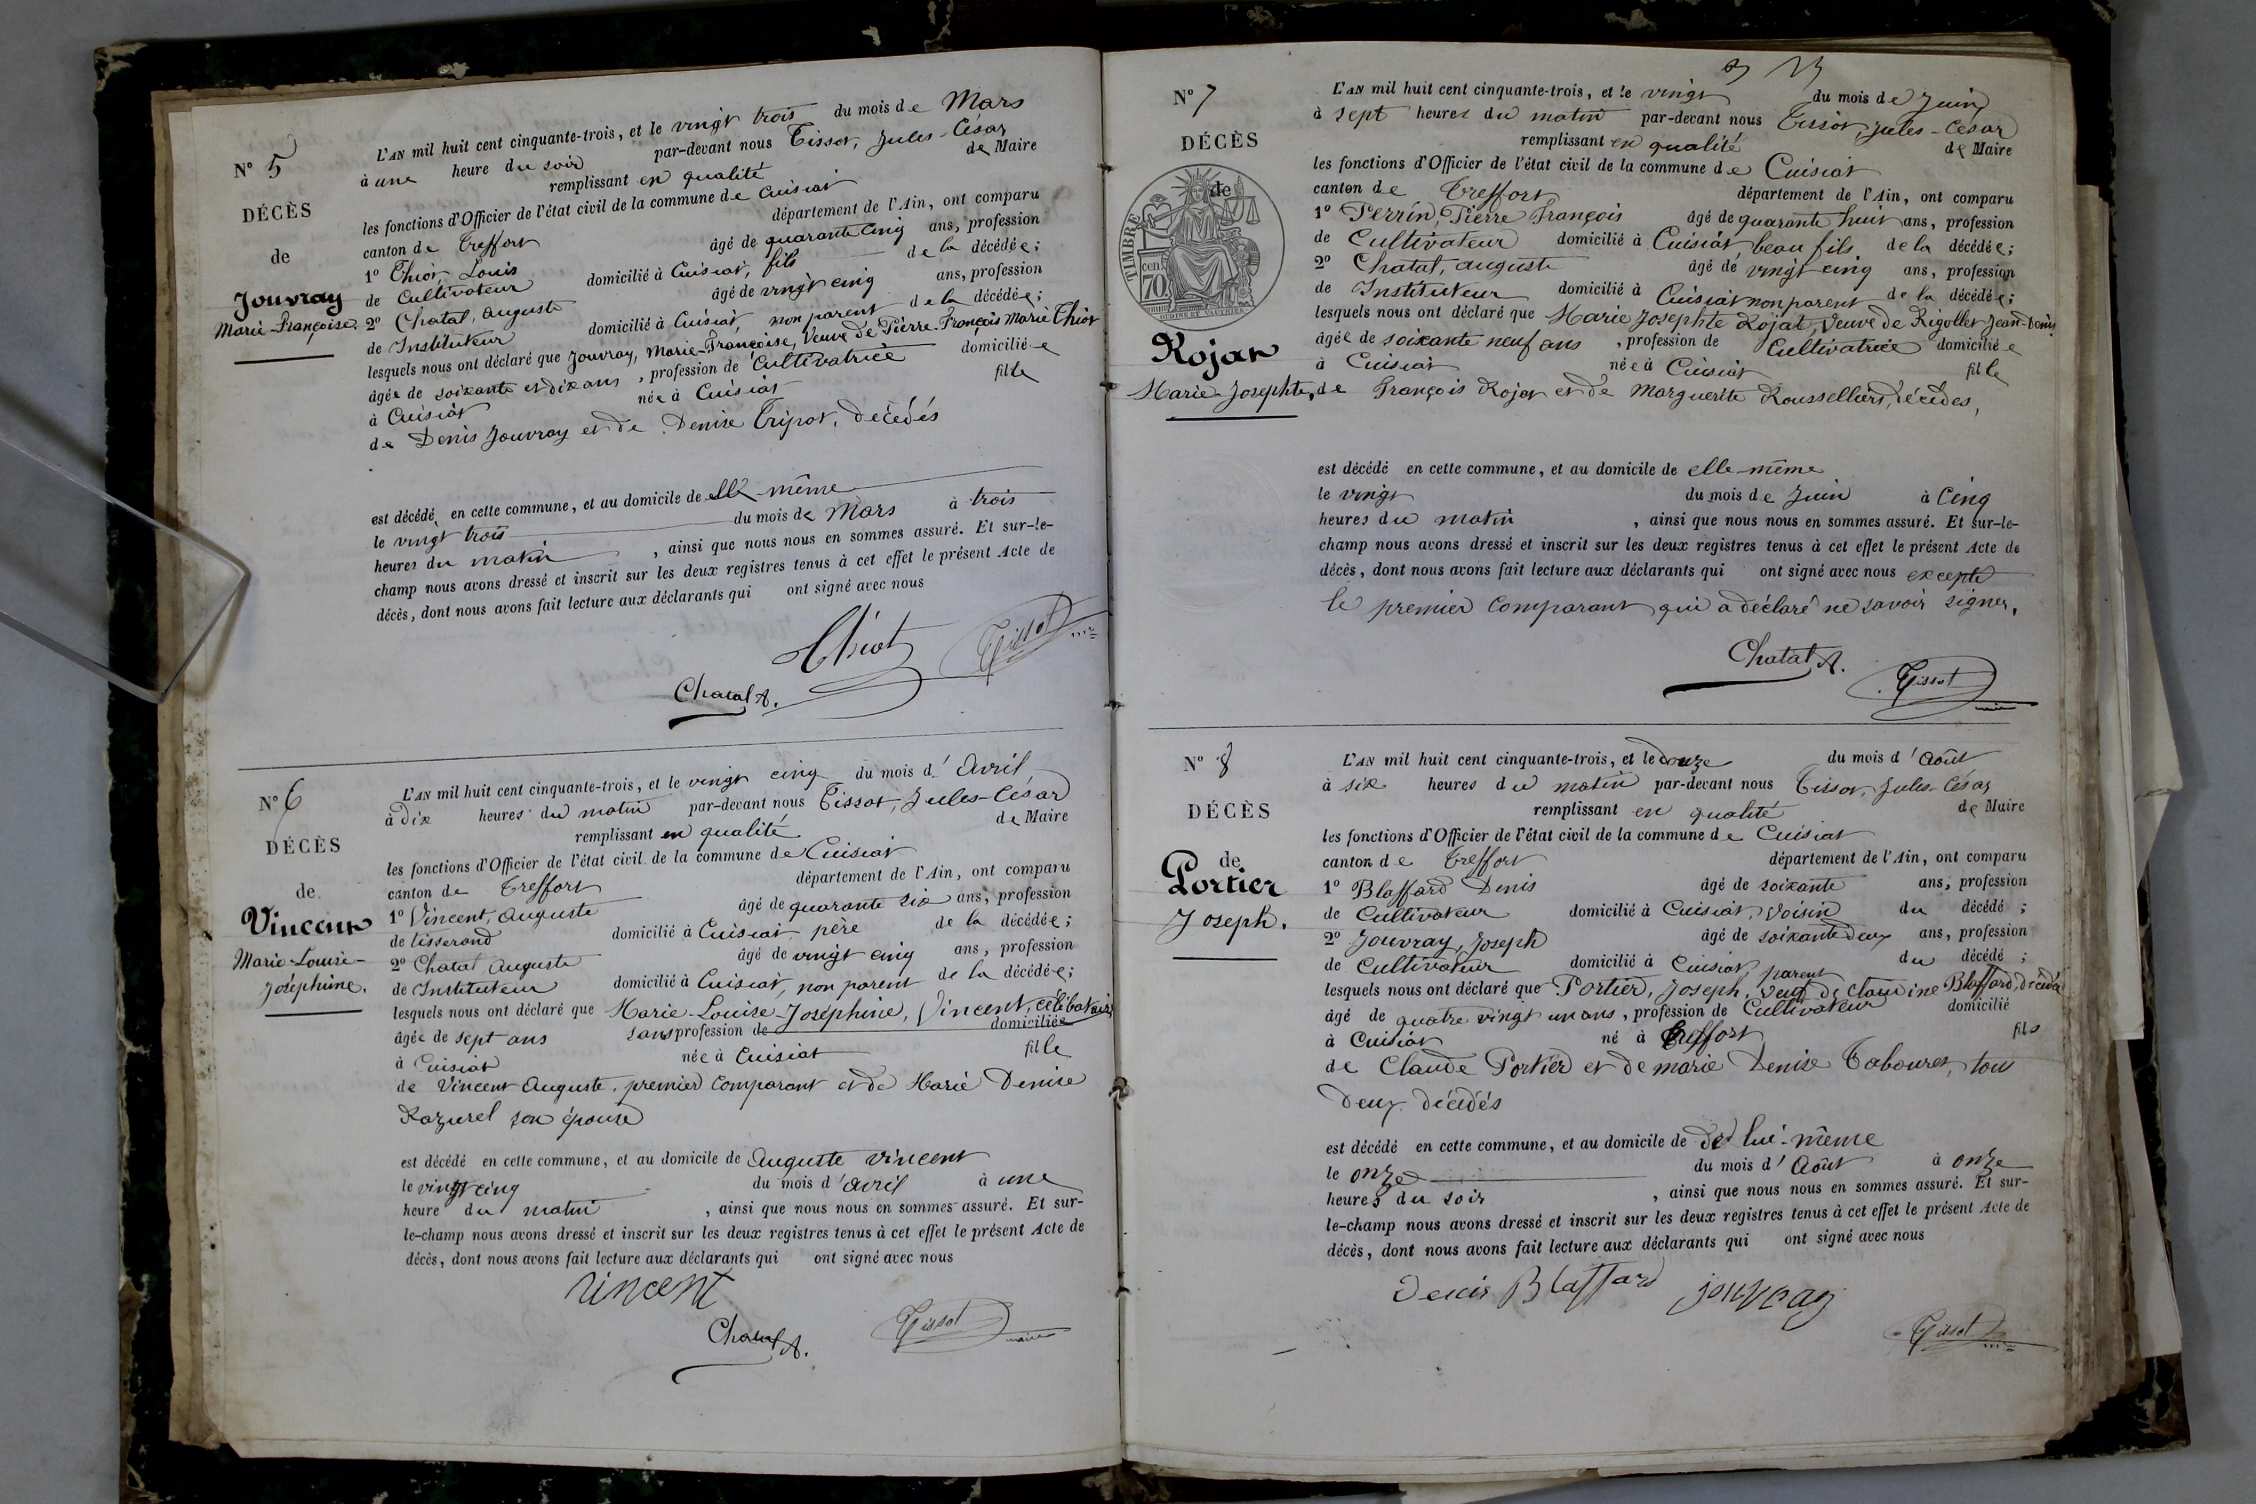 N° 5
DÉCÈS
de
Jouvray
Marie-Françoise.
L'AN mil huit cent cinquante-trois, et le vingt trois du mois de Mars
à une heure du soir par-devant nous Tissot, Jules-César
remplissant en qualité de Maire
les fonctions d'Officier de l'état civil de la commune de Cuisiat
canton de Treffort département de l'Ain, ont comparu
1° Thiot, Louis âgé de quarante cinq ans, profession
de Cultivateur domicilié à Cuisiat, fils de la décédée;
2° Chatal, auguste âgé de vingt cinq ans, profession
de Instituteur domicilié à Cuisiat, non parent de la décédée;
lesquels nous ont déclaré que Jouvray, Marie-Françoise, Veuve de Pierre-François Marie Thiot
âgée de soixante et dix ans, profession de Cultivatrice domiciliée
à Cuisiat née à Cuisiat fille
de Denis Jouvray et de Denise Tripot, décédés
est décédé en cette commune, et au domicile de elle-même
le vingt trois du mois de Mars à trois
heures du matin, ainsi que nous nous en sommes assuré. Et sur-le-
champ nous avons dressé et inscrit sur les deux registres tenus à cet effet le présent Acte de
décès, dont nous avons fait lecture aux déclarants qui ont signé avec nous
Thiot Tissot
Chatal A.
N° 6
DÉCÈS
de
Vincent
Marie-Louise-
Joséphine.
L'AN mil huit cent cinquante-trois, et le vingt cinq du mois d'Avril
à dix heures du matin par-devant nous Tissot, Jules-César
remplissant en qualité de Maire
les fonctions d'Officier de l'état civil de la commune de Cuisiat
canton de Treffort département de l'Ain, ont comparu
1° Vincent, Auguste âgé de quarante six ans, profession
de tisserand domicilié à Cuisiat père de la décédée;
2° Chatal Auguste âgé de vingt cinq ans, profession
de Instituteur domicilié à Cuisiat, non parent de la décédée;
lesquels nous ont déclaré que Marie-Louise-Joséphine, Vincent, célibataire
âgée de sept ans sans profession de domiciliée
à Cuisiat née à Cuisiat fille
de Vincent Auguste, premier Comparant et de Marie Denise
Razurel son épouse
est décédé en cette commune, et au domicile de Auguste Vincent
le vingt cinq du mois d'avril à une
heure du matin, ainsi que nous nous en sommes assuré. Et sur-
le-champ nous avons dressé et inscrit sur les deux registres tenus à cet effet le présent Acte de
décès, dont nous avons fait lecture aux déclarants qui ont signé avec nous
Vincent
Chatal A. Tissot maire
N° 7
DÉCÈS
de
TIMBRE
cent
70
Rojat
Marie-Josephte,
L'AN mil huit cent cinquante-trois, et le vingt du mois de Juin
à sept heures du matin par-devant nous Tissot, Jules-César
remplissant en qualité de Maire
les fonctions d'Officier de l'état civil de la commune de Cuisiat
canton de Treffort département de l'Ain, ont comparu
1° Perrin, Pierre François âgé de quarante huit ans, profession
de Cultivateur domicilié à Cuisiat beau fils de la décédée;
2° Chatal, auguste âgé de vingt cinq ans, profession
de Instituteur domicilié à Cuisiat non parent de la décédée;
lesquels nous ont déclaré que Marie Josephte Rojat, Veuve de Rigollet Jean-Denis
âgée de soixante neuf ans, profession de Cultivatrice domiciliée
à Cuisiat née à Cuisiat fille
de François Rojat et de Marguerite décédés,
est décédé en cette commune, et au domicile de elle-même
le vingt du mois de Juin à Cinq
heures du matin, ainsi que nous nous en sommes assuré. Et sur-le-
champ nous avons dressé et inscrit sur les deux registres tenus à cet effet le présent Acte de
décès, dont nous avons fait lecture aux déclarants qui ont signé avec nous excepté
le premier Comparant qui a déclaré ne savoir signer.
Chatal A. Tissot
N° 8
DÉCÈS
de
Portier
Joseph.
L'AN mil huit cent cinquante-trois, et le douze du mois d'Août
à six heures du matin par-devant nous Tissot, Jules-César
remplissant en qualité de Maire
les fonctions d'Officier de l'état civil de la commune de Cuisiat
canton de Treffort département de l'Ain, ont comparu
1° Blaffard Denis âgé de soixante ans, profession
de Cultivateur domicilié à Cuisiat, Voisin du décédé;
2° Jouvray, Joseph âgé de soixante deux ans, profession
de Cultivateur domicilié à Cuisiat, parent du décédé;
lesquels nous ont déclaré que Portier, Joseph, veuf de Claudine Blaffard, décédé
âgé de quatre vingt un ans, profession de Cultivateur domicilié
à Cuisiat né à Treffort fils
de Claude Portier et de marie Denise Tabouret, tous
deux décédés
est décédé en cette commune, et au domicile de de lui-même
le onze du mois d'Août à onze
heures du soir, ainsi que nous nous en sommes assuré. Et sur-
le-champ nous avons dressé et inscrit sur les deux registres tenus à cet effet le présent Acte de
décès, dont nous avons fait lecture aux déclarants qui ont signé avec nous
Denis Blaffard jouvray
Tissot